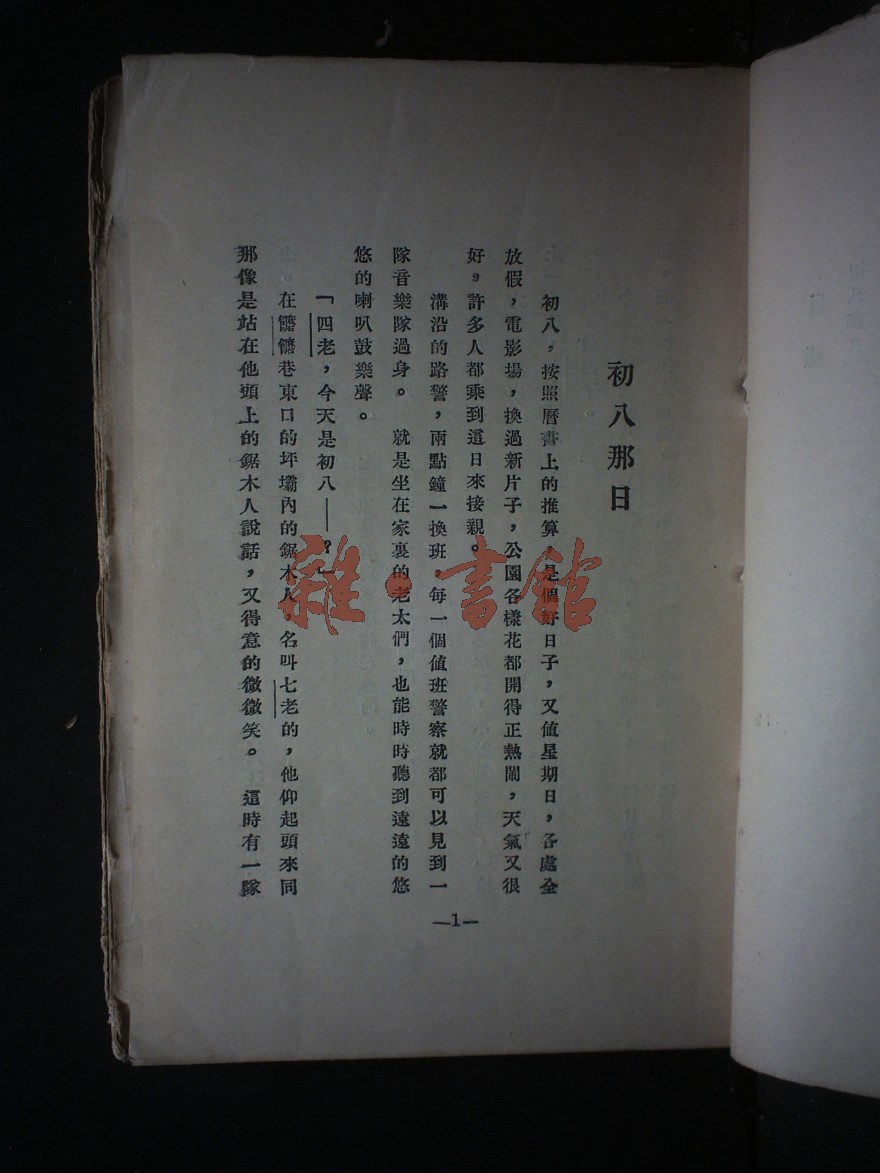 初八那日
初八，按照曆書上的推算，是個好日子，又值星期日，各處全
放假，電影場，換過新片子，公園各樣花都開得正熱鬧，天氣又很
好。許多人都乘到這日來接親。
溝沿的路警，兩點鐘一換班，每一個值班警察就都可以見到一
隊音樂隊過身。 就是坐在家裏的老太們，也能時時聽到遠遠的悠
悠的喇叭鼓樂聲。
「四老，今天是初八——？」
在髒髒巷東口的坪壩內的鋸木人，名叫七老的，他仰起頭來同
那像是站在他頭上的鋸木人說話，又得意的微微笑。 這時有一隊
—1—
雜·書館